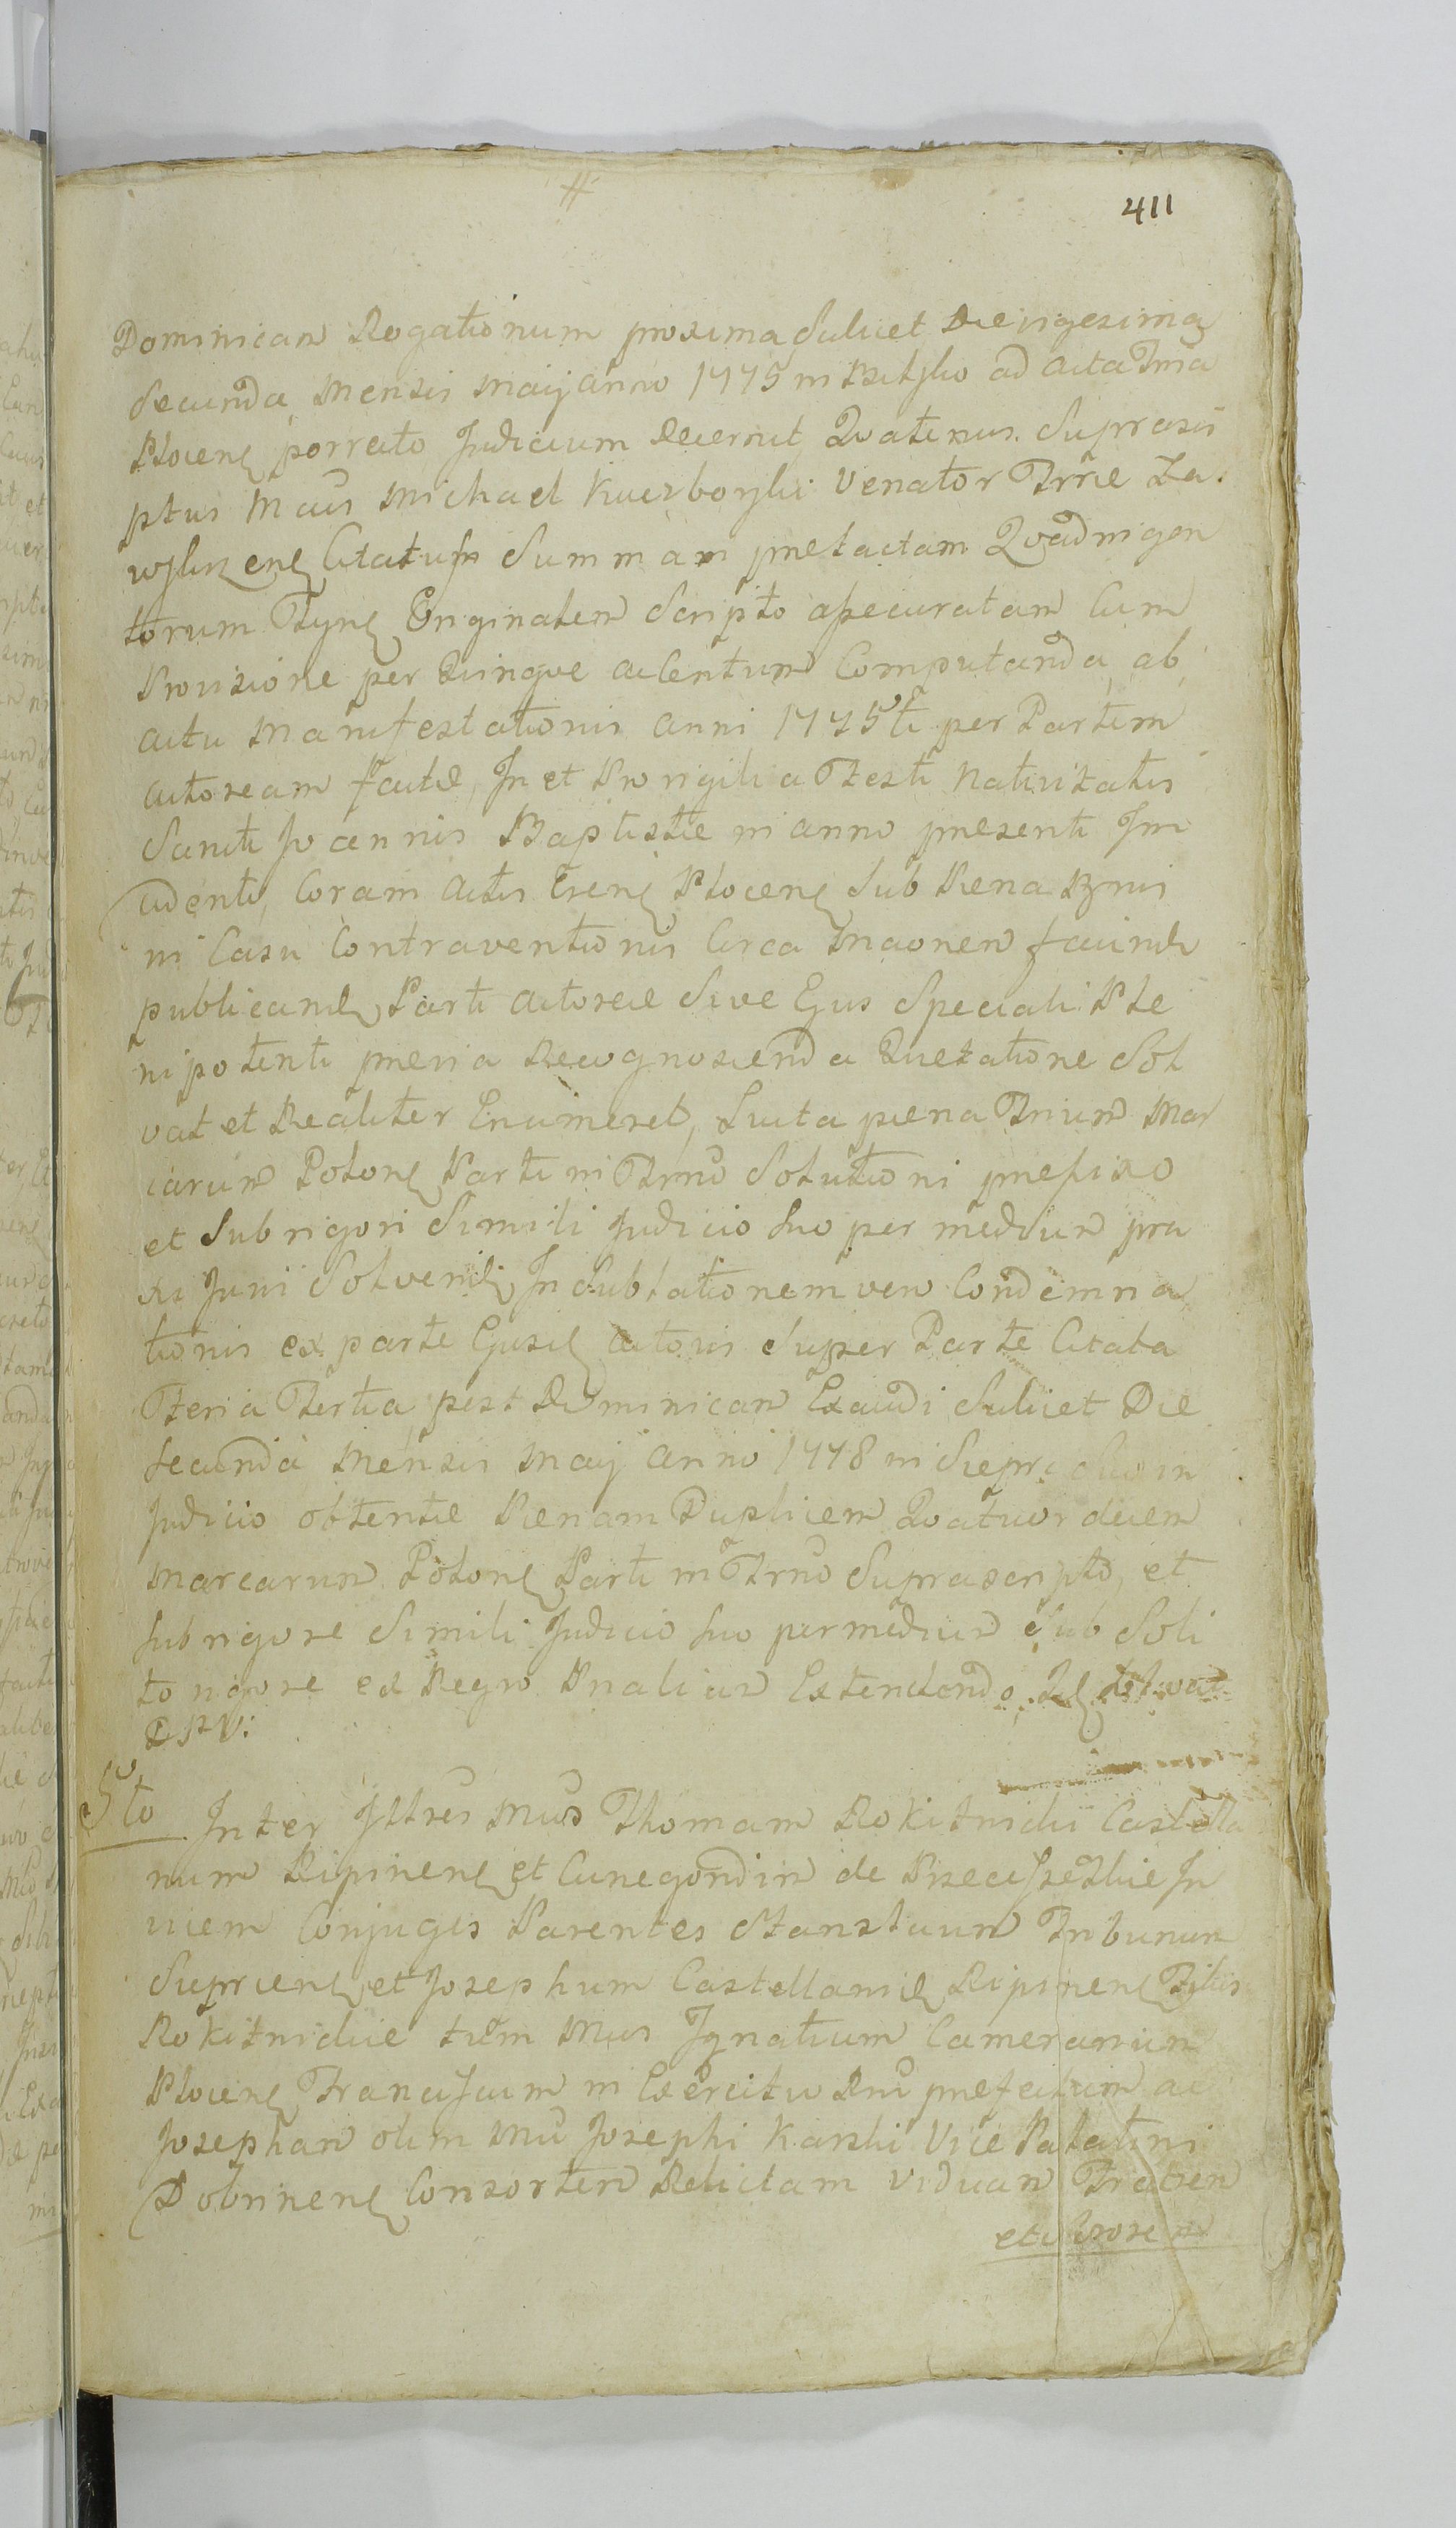 #
411
Dominicam Rogationum proxima Scilicet Die vigesima
Secunda Mensis Maij Anno 1775 in ad Acta Trria
Plocen porrecto Judicium Decernit Quatenus Suprascri
ptus Mcus Michael Venator Trrae Za
wskrzen Citatus Summam praetactam Quadringen
torum Flpn Originaliter Scripto assecuratam Cum
Provisione per Quinque a Centum Computanda ab
actu Manifestationis Anni 1775ti per Partem
Actoream factae, In et Pro vigilia Festi Nativitatis
Sancti Joannis Baptistae in anno praesenti In
cidenti, Coram Actis Tren Plocen Sub Paena Bnnis
in Casu Contraventionis Circa Maonem faciend
publicand Parti Actoreae Sive Ejus Speciali Ple
nipotenti praevia Recognoscenda Quietatione Sol
vat et Realiter Enumeret, Luita paena Trium Mar
carum Polon Parti in Trno Solutioni praefixo
et Sub rigori Simili Judicio Suo per medium pra
vi Juri Solvend, In Sublationem vero Condemna
tionis ex parte Ejusd Actoris Super Parte Citata
Feria Tertia post Dominicam Exaudi Scilicet Die
Secunda Mensis Maij Anno 1778 in in
Judicio obtentae Paenam Duplicem Quatuordecem
Marcarum Polon Parti in Trno Suprascripto, et
Sub rigore Simili Judicio Suo per medium Sub Soli
to rigore ex Regro Pnalium Extendendo Solvat
D P V:
5to Inter Illtres Mcos Thomam Rokitnicki Castella
num Ripinen et Cunegondim de Przeciszewskie In
vicem Conjuges Parentes Stanslaum Tribunum
Sieprcen et Josephum Castellanid Ripinen Filios
Rokitnickie tum Mcos Ignatium Camerarium
Plocen Franciscum in Exercitu Rni praefectum ac
Josepham olim Mci Josephi Karski Vice Palatini
Dobrinen Consortem Relictam Viduam Fratrem
et Sororem